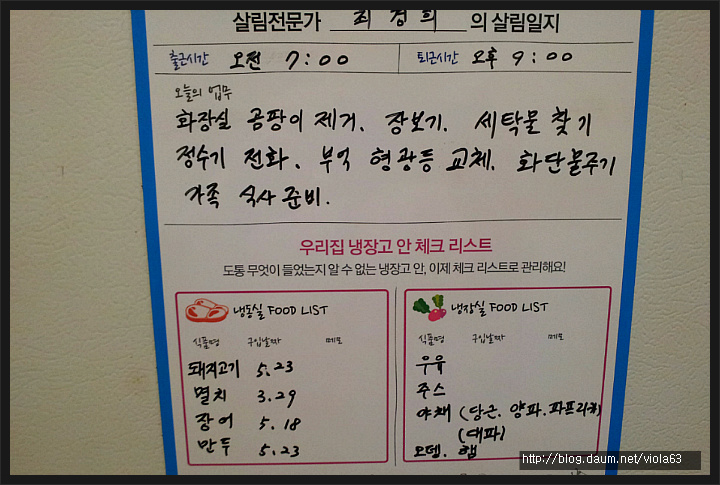 살림전문가 최정희 의 살림일지
출근시간 오전 7:00 퇴근시간 오후 9:00
오늘의 업무
화장실 곰팡이 제거. 장보기. 세탁물 찾기
정수기 전화. 부엌 형광등 교체. 화단물주기
가족 식사 준비.
우리집 냉장고 안 체크 리스트
도통 무엇이 들었는지 알 수 없는 냉장고 안, 이제 체크 리스트로 관리해요!
냉동실 FOOD LIST
식품명 구입날짜 메모
돼지고기 5.23
멸치 3.29
장어 5.18
만두 5.23
냉장실 FOOD LIST
식품명 구입날짜 메모
우유
주스
야채 (당근. 양파. 파프리카)
(대파)
오뎅. 햄
http://blog.daum.net/viola63